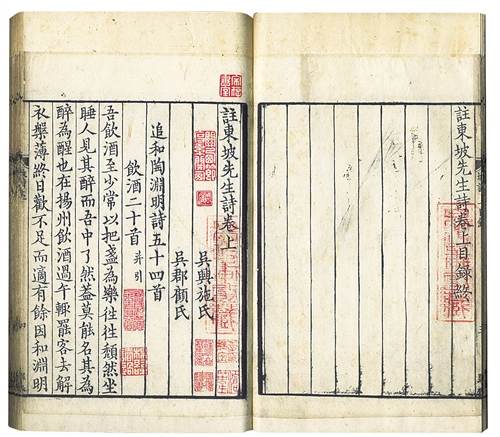 註東坡先生詩卷上目録終
註東坡先生詩卷上
吳興施氏
吳郡顧氏
追和陶淵明詩五十四首
飲酒二十首并引
吾飲酒至少常以把盞為樂往往頹然坐
睡人見其醉而吾中了然蓋莫能名其為
醉為醒也在揚州飲酒過午輒罷客去解
衣槃薄終日歡不足而適有餘因和淵明